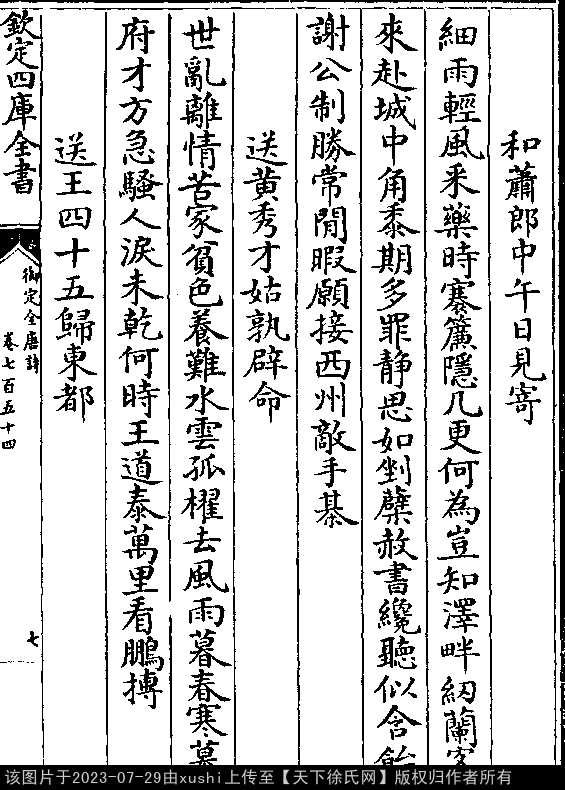 和蕭郎中午日見寄
細雨輕風采藥時褰簾隱几更何為豈知澤畔紉蘭客
來赴城中角黍期多罪靜思如剉蘗赦書纔聽似含飴
謝公制勝常閒暇願接西州敵手棊
送黄秀才姑孰辟命
世亂離情苦家貧色養難水雲孤櫂去風雨暮春寒幕
府才方急騷人淚未乾何時王道泰萬里看鵬摶
送王四十五歸東都
欽定四庫全書
御定全唐詩
卷七百五十四
七
该图片于2023-07-29由xushi上传至【天下徐氏网】版权归作者所有